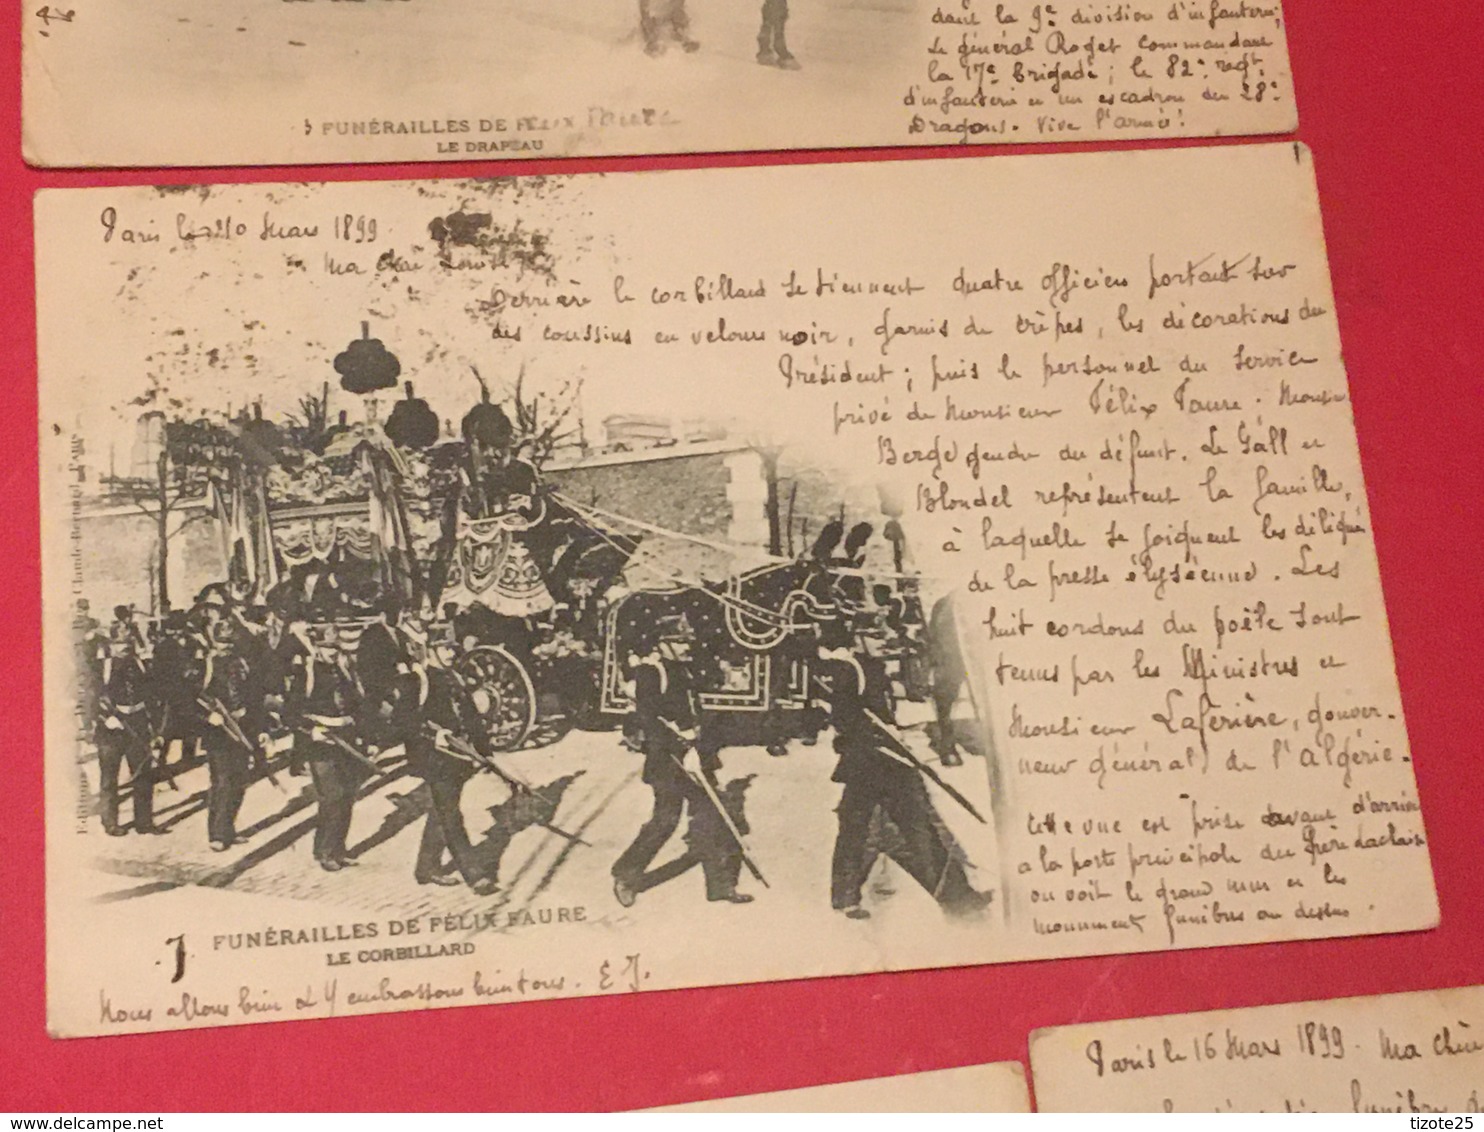 dans la 9e division d'infanterie;
le général Roget commandant
la 17e brigade; le 82e regt
d'infanterie et un escadron du 28e
Dragons. Vive l'armée!
FUNÉRAILLES DE FÉLIX FAURE
LE DRAPEAU
Paris le 20 Mars 1899
Ma chère Louise
Derrière le corbillard se tiennent quatre officiers portant sur
des coussins en velours noir, garnis de crêpes, les décorations du
Président; puis le personnel du service
privé de Monsieur Félix Faure. Monsieur
Berge gendre du défunt. Le Gall et
Blondel représentent la famille,
à laquelle se joignent les délégués
de la presse élyséenne. Les
huit cordons du poêle sont
tenus par les Ministres et
Monsieur Laferière, gouver-
neur général de l'Algérie.
Cette vue est prise d'arrière
a la porte principale du Père Lachaise
on voit le grand mur et les
monument funèbres au dessus.
Editions E. L. D. Claude-Bernard PARIS
J
FUNÉRAILLES DE FÉLIX FAURE
LE CORBILLARD
Nous allons bien et t'embrassons bien tous. E J.
Paris le 16 Mars 1899. Ma chère
funèbre
https://www.delcampe.net
tizote25